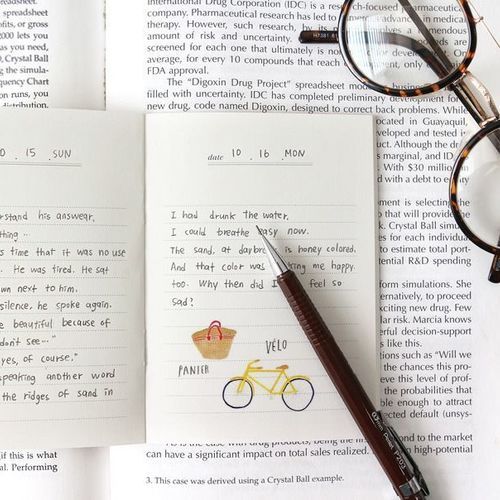 spreadsheet
2000 lets you
as you need,
Crystal Ball
Chart
on runs, you
distribution.
International Drug Corporation (IDC) is a research-focused pharmaceutical
company. Pharmaceutical research has led to
therapy. However, such research, by its
amount of risk and uncertainty.
screened for each one that ultimately is
average, for every 10 compounds that reach
FDA approval.
The "Digoxin Drug Project" spreadsheet
filled with uncertainty. IDC has completed preliminary development for
new drug, code named Digoxin, designed to correct back problems. While
ocated in Guayaquil,
veloped and tested
uct. Although the
s marginal, and ID
With $30 million
with a debt to
ment is selecting the
that will provide
s. Crystal Ball
es for each individual
to estimate total
tential R&D spending
form simulations. She
ernatively, to proceed
citing new drug. Few
lar risk. Marcia knows
erful decision-support
s like this.
tions such as "Will we
the chances this pro-
eve this level of prof-
the probabilities that
ble enough to attract
ected default (unsys-
0 . 15 . SUN
stand his answear.
thing ...
s time that it was no use
. He was tired. He sat
wn next to him.
silence, he spoke again.
e beautiful because of
don't see..."
"yes, of course."
peaking another word
the ridges of sand in
date 10 . 16 . MON
I had drunk the water.
I could breathe easy now.
The sand, at daybreak is honey colored.
And that color was making me happy
too. Why then did I feel so
sad?
PANIER
VÉLO
if this is what
al. Performing
As is the case with drug products, being the
ond to the market
can have a significant impact on total sales realized.
n high-potential
3. This case was derived using a Crystal Ball example.